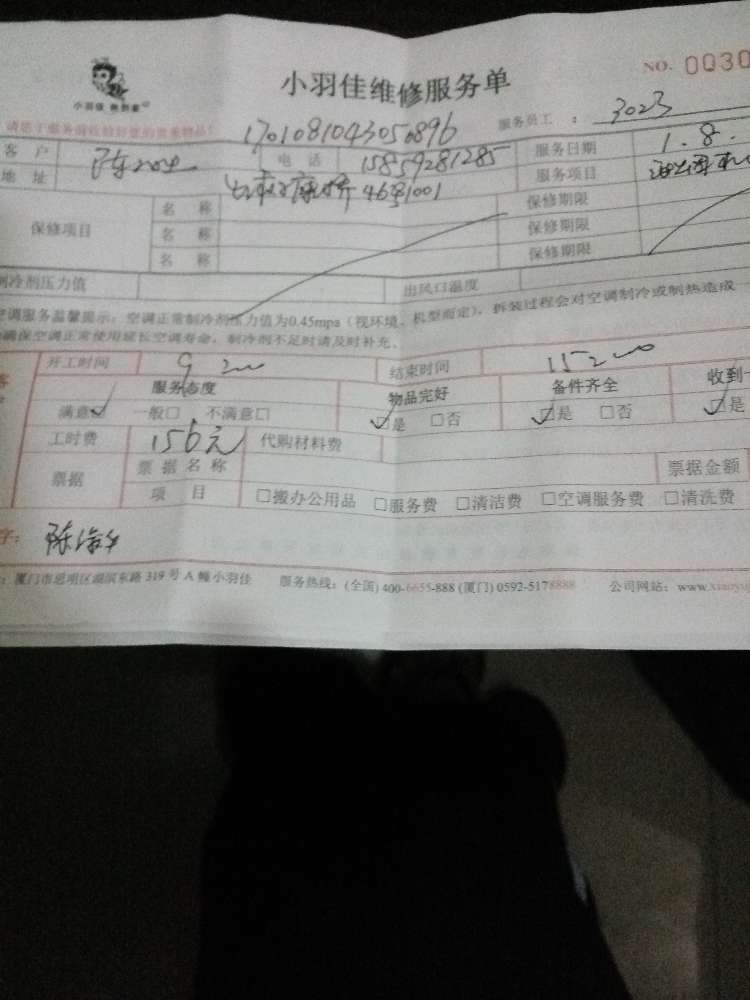 小羽佳维修服务单
NO. 0030
小羽佳
请您于服务前收好您的贵重物品!
1701081043050896
服务员工 : 3023
客 户 电 话 15859281285 服务日期 1.8.
地 址 46号1001 服务项目
保修项目 名 称 保修期限
名 称 保修期限
名 称 保修期限
制冷剂压力值 出风口温度
空调服务温馨提示:空调正常制冷剂压力值为0.45mpa(视环境、机型而定),拆装过程会对空调制冷或制热造成一
确保空调正常使用延长空调寿命,制冷剂不足时请及时补充。
开工时间 9 结束时间 15
服务态度 物品完好 备件齐全 收到一
满意☑ 一般□ 不满意□ ☑是 □否 ☑是 □否 ☑是
工时费 156元 代购材料费
票据 票 据 名 称 票据金额
项 目 □搬办公用品 □服务费 □清洁费 □空调服务费 □清洗费
字:
:厦门市思明区湖滨东路 319 号 A 幢小羽佳 服务热线:(全国) 400-6655-888 (厦门) 0592-5178888 公司网站:www.xiaoyu